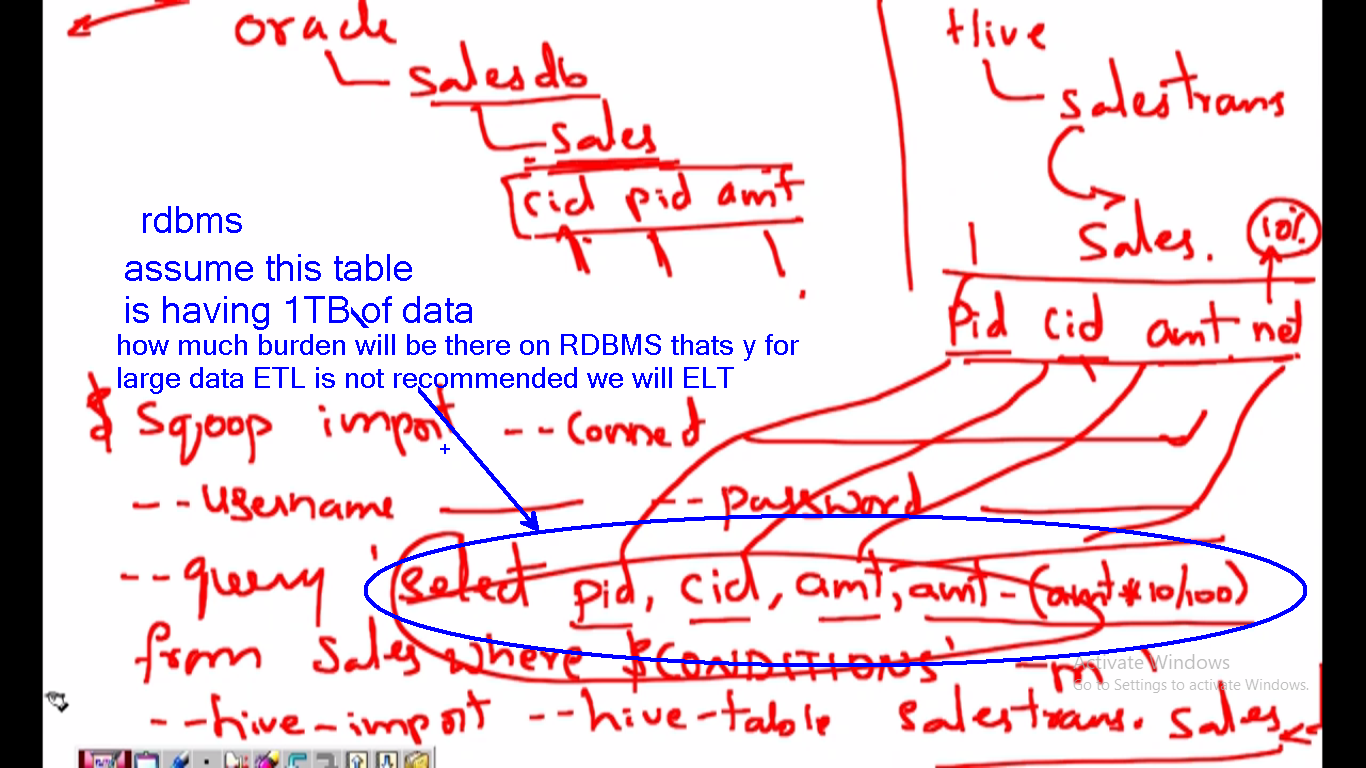 oracle
salesdb
sales
cid pid amt
Hive
salestrans
Sales. 10%
Pid cid amt net
rdbms
assume this table
is having 1TB of data
how much burden will be there on RDBMS thats y for
large data ETL is not recommended we will ELT
$ Sqoop import --connect
--username --password
--query 'select pid, cid, amt, amt-(amt*10/100)
from sales where $CONDITIONS' -m 1
--hive-import --hive-table salestrans.sales
Activate Windows
Go to Settings to activate Windows.